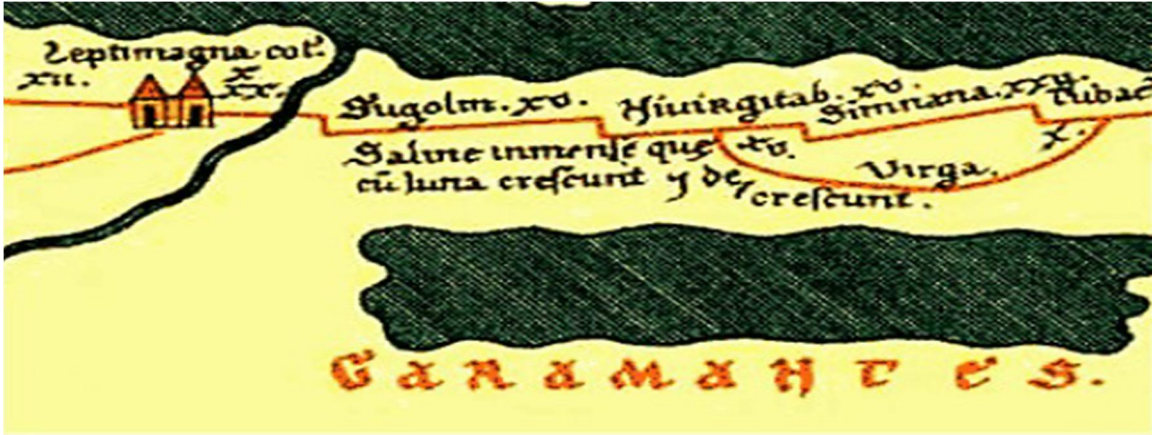 Leptimagna col.
xii.
x.
xx.
Sugolin. xv.
Niuirgitab. xv.
Simnana. xxii.
Tubac
Saline inmense que xv.
cū luna crescunt ⁊ de
crescunt.
Virga.
x.
GARAMANTES.